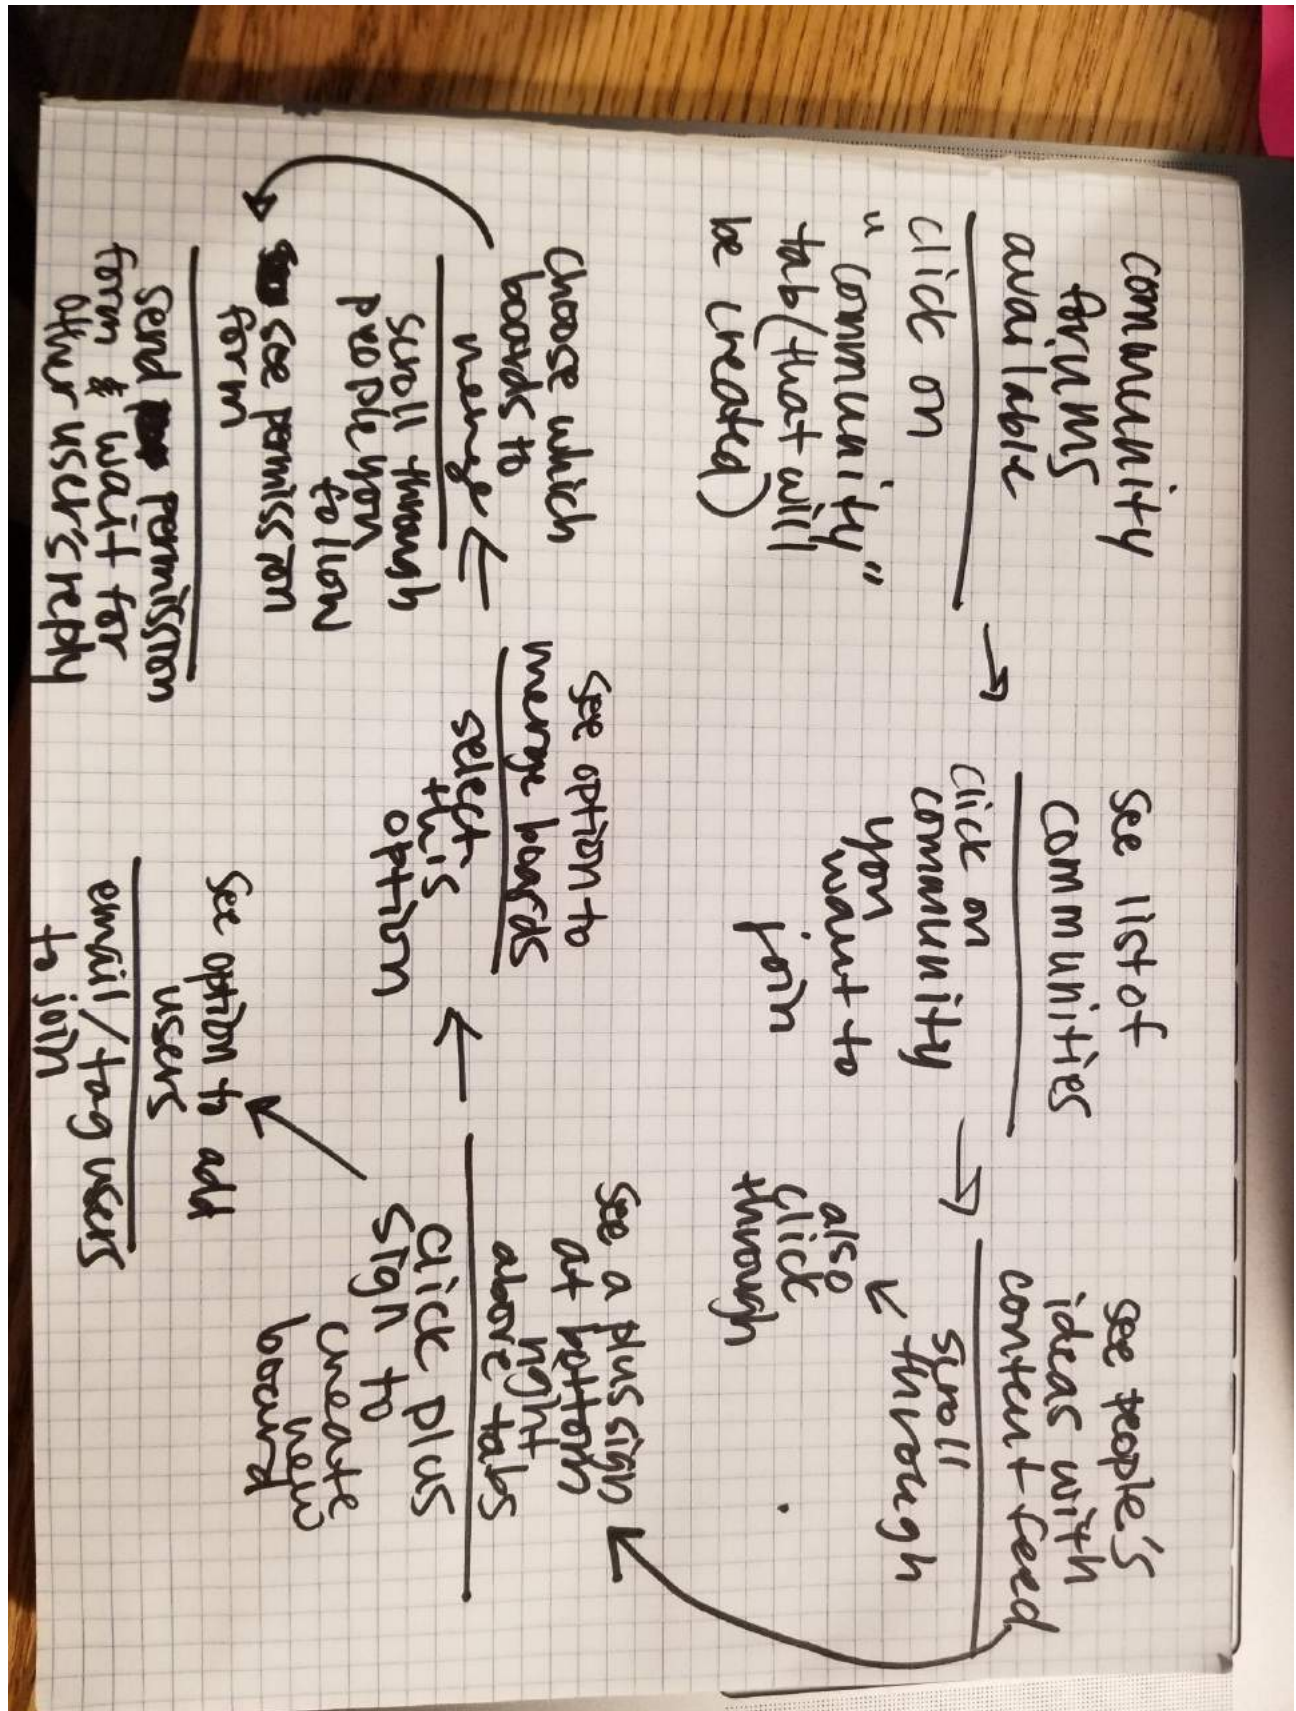 community
forums
available
click on
"community"
tab (that will
be created)
see list of
communities
click on
community
you
want to
join
see people's
ideas with
content feed
scroll
through
also
click
through
see a plus sign
at bottom
right
above tabs
click plus
sign to
create
new
board
see option to
merge boards
select
this
option
see option to add
users
email/tag users
to join
choose which
boards to
merge
scroll through
people you
follow
see permission
form
send permission
form & wait for
other user's reply